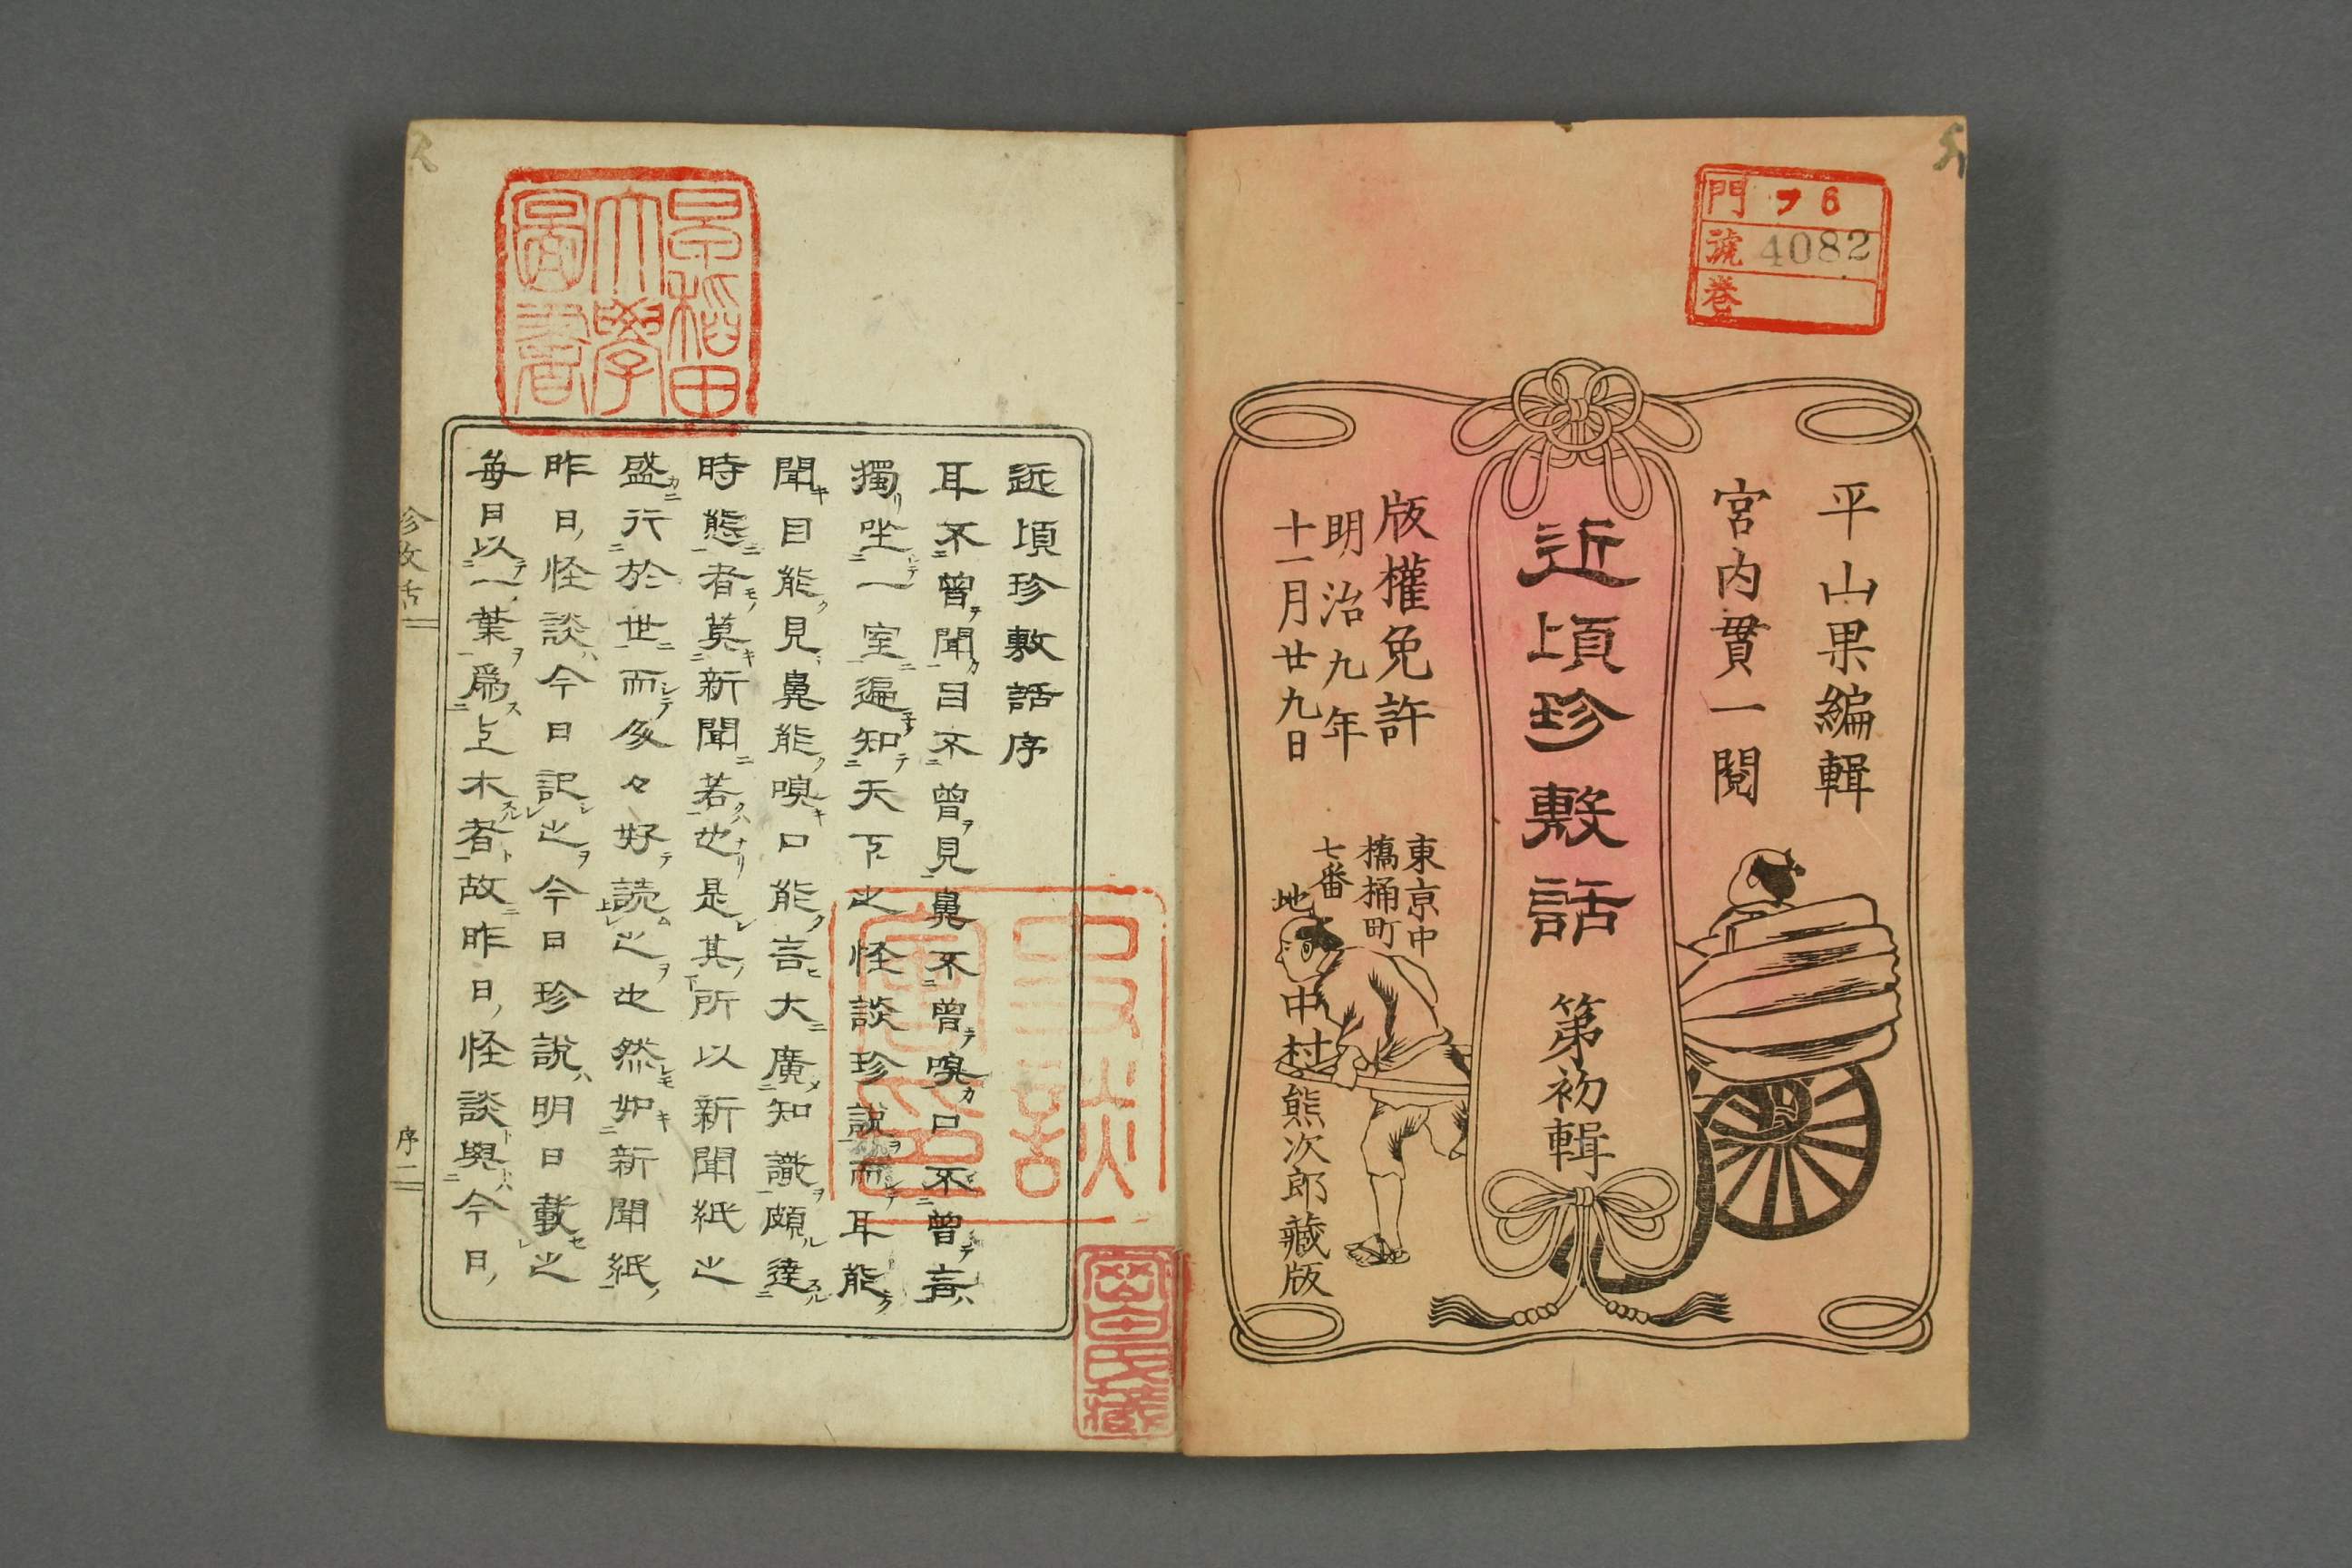 門 ヲ 6
號 4082
巻
平山果編輯
宮内貫一閲
近頃珍敷話 第初輯
版權免許
明治九年
十一月廿九日
東京中
橋桶町
七番
地
中村熊次郎藏版
早稲田
大學
圖書
近頃珍敷話序
耳不曾聞目不曾見鼻不曾嗅口不曾言
獨坐一室遍知天下之怪談珍說而耳能
聞目能見鼻能嗅口能言大廣知識頗達
時態者莫新聞若也是其所以新聞紙之
盛行於世而多々好読之也然如新聞紙
昨日怪談今日記之今日珍說明日載之
每日以一葉爲上木者故昨日怪談與今日
序二